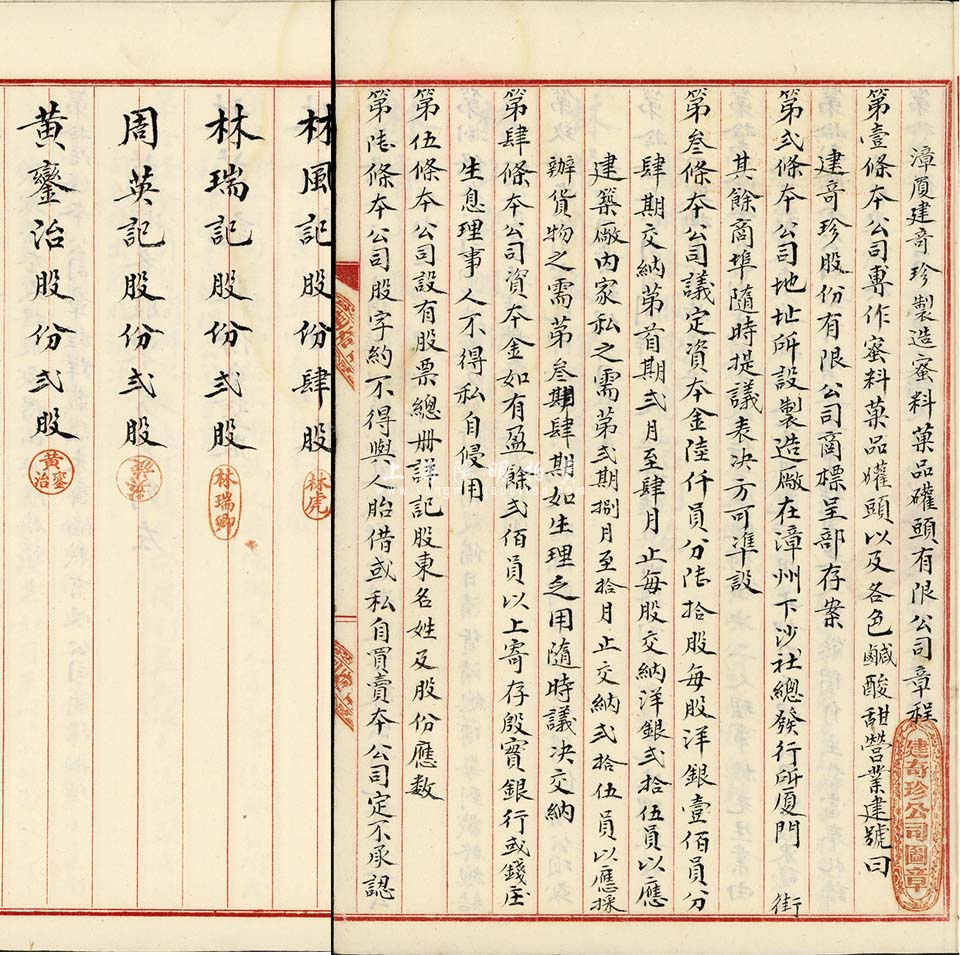 漳厦建奇珍製造蜜料菓品罐頭有限公司章程
第壹條本公司專作蜜料菓品罐頭以及各色鹹酸甜營業建號曰
建奇珍股份有限公司商標呈部存案
第弍條本公司地址所設製造廠在漳州下沙社總發行所厦門 街
其餘商埠隨時提議表决方可準設
第叁條本公司議定資本金陸仟員分陸拾股每股洋銀壹佰員分
肆期交納第首期弍月至肆月止每股交納洋銀弍拾伍員以應
建築廠内家私之需第弍期捌月至拾月止交納弍拾伍員以應採
辦貨物之需第叁期肆期如生理之用隨時議决交納
第肆條本公司資本金如有盈餘弍佰員以上寄存殷實銀行或錢庄
生息理事人不得私自侵用
第伍條本公司設有股票總册詳記股東名姓及股份應数
第陸條本公司股字約不得與人胎借或私自買賣本公司定不承認
建奇珍公司圖章
林風記股份肆股
林虎
林瑞記股份弍股
林瑞卿
周英記股份弍股
黄鑾治股份弍股
黄鑾治